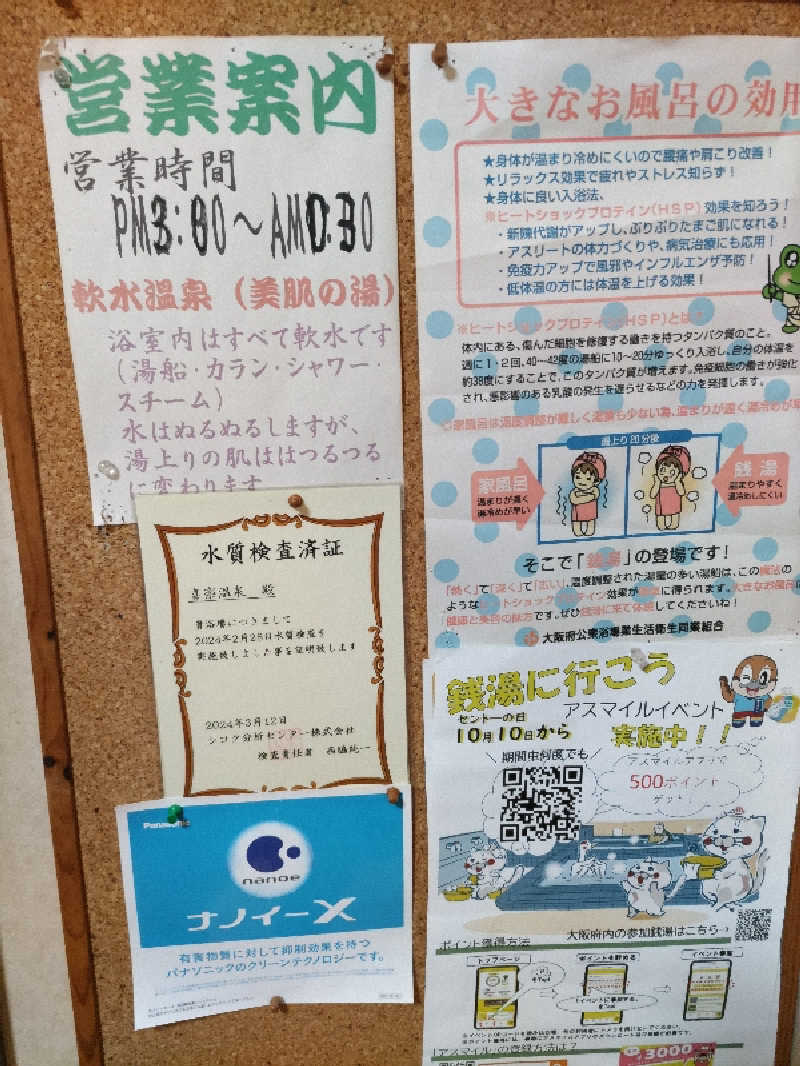 営業案内
営業時間
PM3:00～AM0:30
軟水温泉（美肌の湯）
浴室内はすべて軟水です
（湯船・カラン・シャワー・
スチーム）
水はぬるぬるしますが、
湯上りの肌ははつるつる
に変わります
水質検査済証
温泉 殿
2024年2月28日水質検査を
実施致しました事を証明致します
2024年3月12日
検査責任者
Panasonic
nanoe
ナノイーX
有害物質に対して抑制効果を持つ
パナソニックのクリーンテクノロジーです。
大きなお風呂の効用
★身体が温まり冷めにくいので腰痛や肩こり改善！
★リラックス効果で疲れやストレス知らず！
★身体に良い入浴法、
※ヒートショックプロテイン（HSP）効果を知ろう！
・新陳代謝がアップし、ぷりぷりたまご肌になれる！
・アスリートの体力づくりや、病気治療にも応用！
・免疫力アップで風邪やインフルエンザ予防！
・低体温の方には体温を上げる効果！
※ヒートショックプロテイン（HSP）とは？
体内にある、傷んだ細胞を修復する働きを持つタンパク質のこと。
週に1・2回、40～42度の湯船に10～20分ゆっくり入浴し、自分の体温を
約38度にすることで、このタンパク質が増えます。免疫細胞の働きが強化
され、悪影響のある乳酸の発生を遅らせるなどの力を発揮します。
家風呂は温度調整が難しく湯量も少ない為、温まりが遅く湯冷めが早
湯上り20分後
家風呂
温まりが遅く
湯冷めが早い
銭湯
温まりやすく
湯冷めしにくい
そこで「銭湯」の登場です！
「熱く」て「深く」て「広い」、温度調整された湯量の多い湯船は、この魔法の
ようなヒートショックプロテイン効果が簡単に得られます。大きなお風呂は
「健康と美容の味方」です。ぜひ銭湯に来て体験してくださいね！
大阪府公衆浴場業生活衛生同業組合
銭湯に行こう
アスマイルイベント
セントーの日
10月10日から
実施中！！
期間中何度でも
アスマイルアプリで
500ポイント
ゲット！
大阪府内の参加銭湯はこちら→
ポイント獲得方法
トップページ
ポイントを貯める
イベント参加
「アスマイル」の登録方法は？
3000